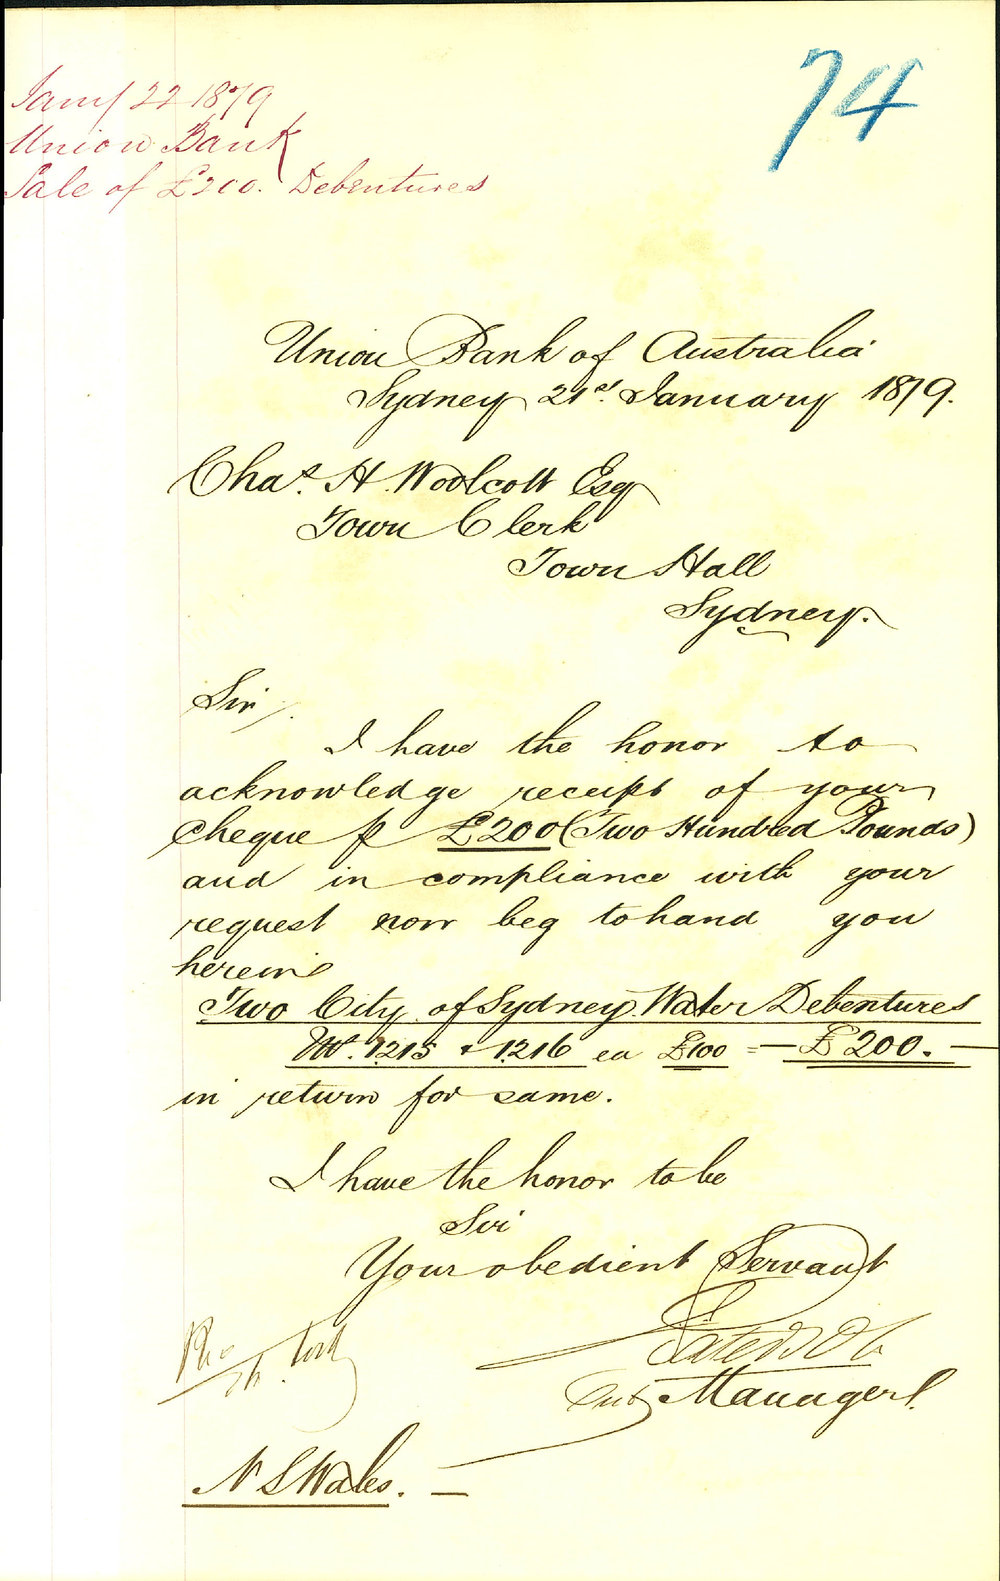 Jany 22 1879
Union Bank
Sale of £200. Debentures
74
Union Bank of Australia
Sydney 21st. January 1879.
Chas. H. Woolcott Esq
Town Clerk
Town Hall
Sydney.
Sir/.
I have the honor to
acknowledge receipt of your
Cheque for £200 (Two Hundred Pounds)
and in compliance with your
request now beg to hand you
herein
Two City of Sydney Water Debentures
No. 1215 & 1216 ea £100 = — £200. —
in return for same.
I have the honor to be
Sir
Your obedient Servant
Sub Manager
N S Wales. —